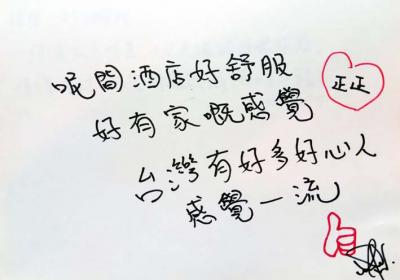 呢間酒店好舒服
正正
好有家嘅感覺
台灣有好多好心人
感覺一流